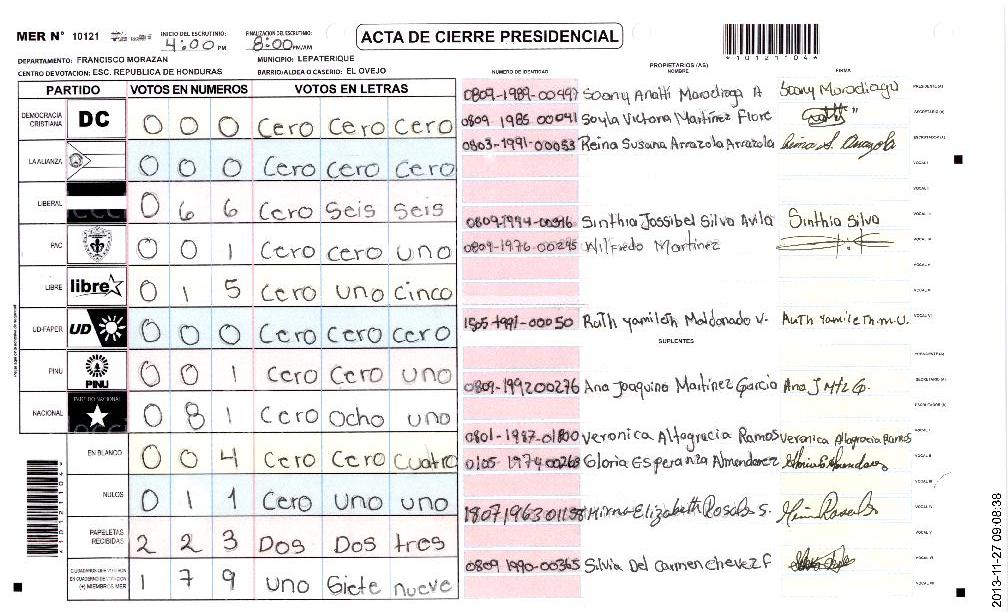 MER N° 10121 INICIO DEL ESCRUTINIO: 4:00 PM FINALIZACION DEL ESCRUTINIO: 8:00 PM/AM ACTA DE CIERRE PRESIDENCIAL
*10121104*
DEPARTAMENTO: FRANCISCO MORAZAN MUNICIPIO: LEPATERIQUE
CENTRO DE VOTACION: ESC. REPUBLICA DE HONDURAS BARRIO/ALDEA O CASERIO: EL OVEJO
PARTIDO VOTOS EN NUMEROS VOTOS EN LETRAS
DEMOCRACIA CRISTIANA DC 0 0 0 Cero Cero Cero
LA ALIANZA 0 0 0 Cero Cero Cero
LIBERAL 0 6 6 Cero Seis Seis
PAC 0 0 1 Cero cero uno
LIBRE libre 0 1 5 Cero uno cinco
UD-FAPER UD 0 0 0 Cero cero cero
PINU PINU 0 0 1 Cero Cero uno
NACIONAL PARTIDO NACIONAL 0 8 1 Cero Ocho uno
EN BLANCO 0 0 4 Cero Cero Cuatro
NULOS 0 1 1 Cero Uno uno
PAPELETAS RECIBIDAS 2 2 3 Dos Dos tres
CIUDADANOS QUE VOTARON EN CUADERNO DE VOTACION (+) MIEMBROS MER 1 7 9 uno Siete nueve
NUMERO DE IDENTIDAD PROPIETARIOS (AS) NOMBRE FIRMA
0809-1989-00497 Soany Anatti Moradiaga A Soany Moradiaga PRESIDENTE (A)
0809 1985 00041 Soyla Victoria Martinez Flore SECRETARIO (A)
0803-1991-00053 Reina Susana Arrazola Arrazola ESCRUTADOR (A)
VOCAL I
VOCAL II
0809-1994-00316 Sinthia Jossibel Silva Avila Sinthia Silva VOCAL III
0809-1976-00295 Wilfredo Martinez VOCAL IV
VOCAL V
1505-1991-00050 Ruth Yamileth Maldonado V. Ruth Yamileth m.U.
SUPLENTES
PRESIDENTE (A)
0809-199200276 Ana Joaquina Martinez Garcia Ana J Mtz G. SECRETARIO (A)
ESCRUTADOR (A)
0801-1987-01800 Veronica Altagracia Ramos Veronica Altagracia Ramos VOCAL I
0105-1974-00268 Gloria Esperanza Almendarez VOCAL II
VOCAL III
1807196301158 Mirna Elizabeth Rosales S. VOCAL IV
VOCAL V
0809 1990-00365 Silvia Del Carmen Chevez F VOCAL VI
2013-11-27 09:08:38